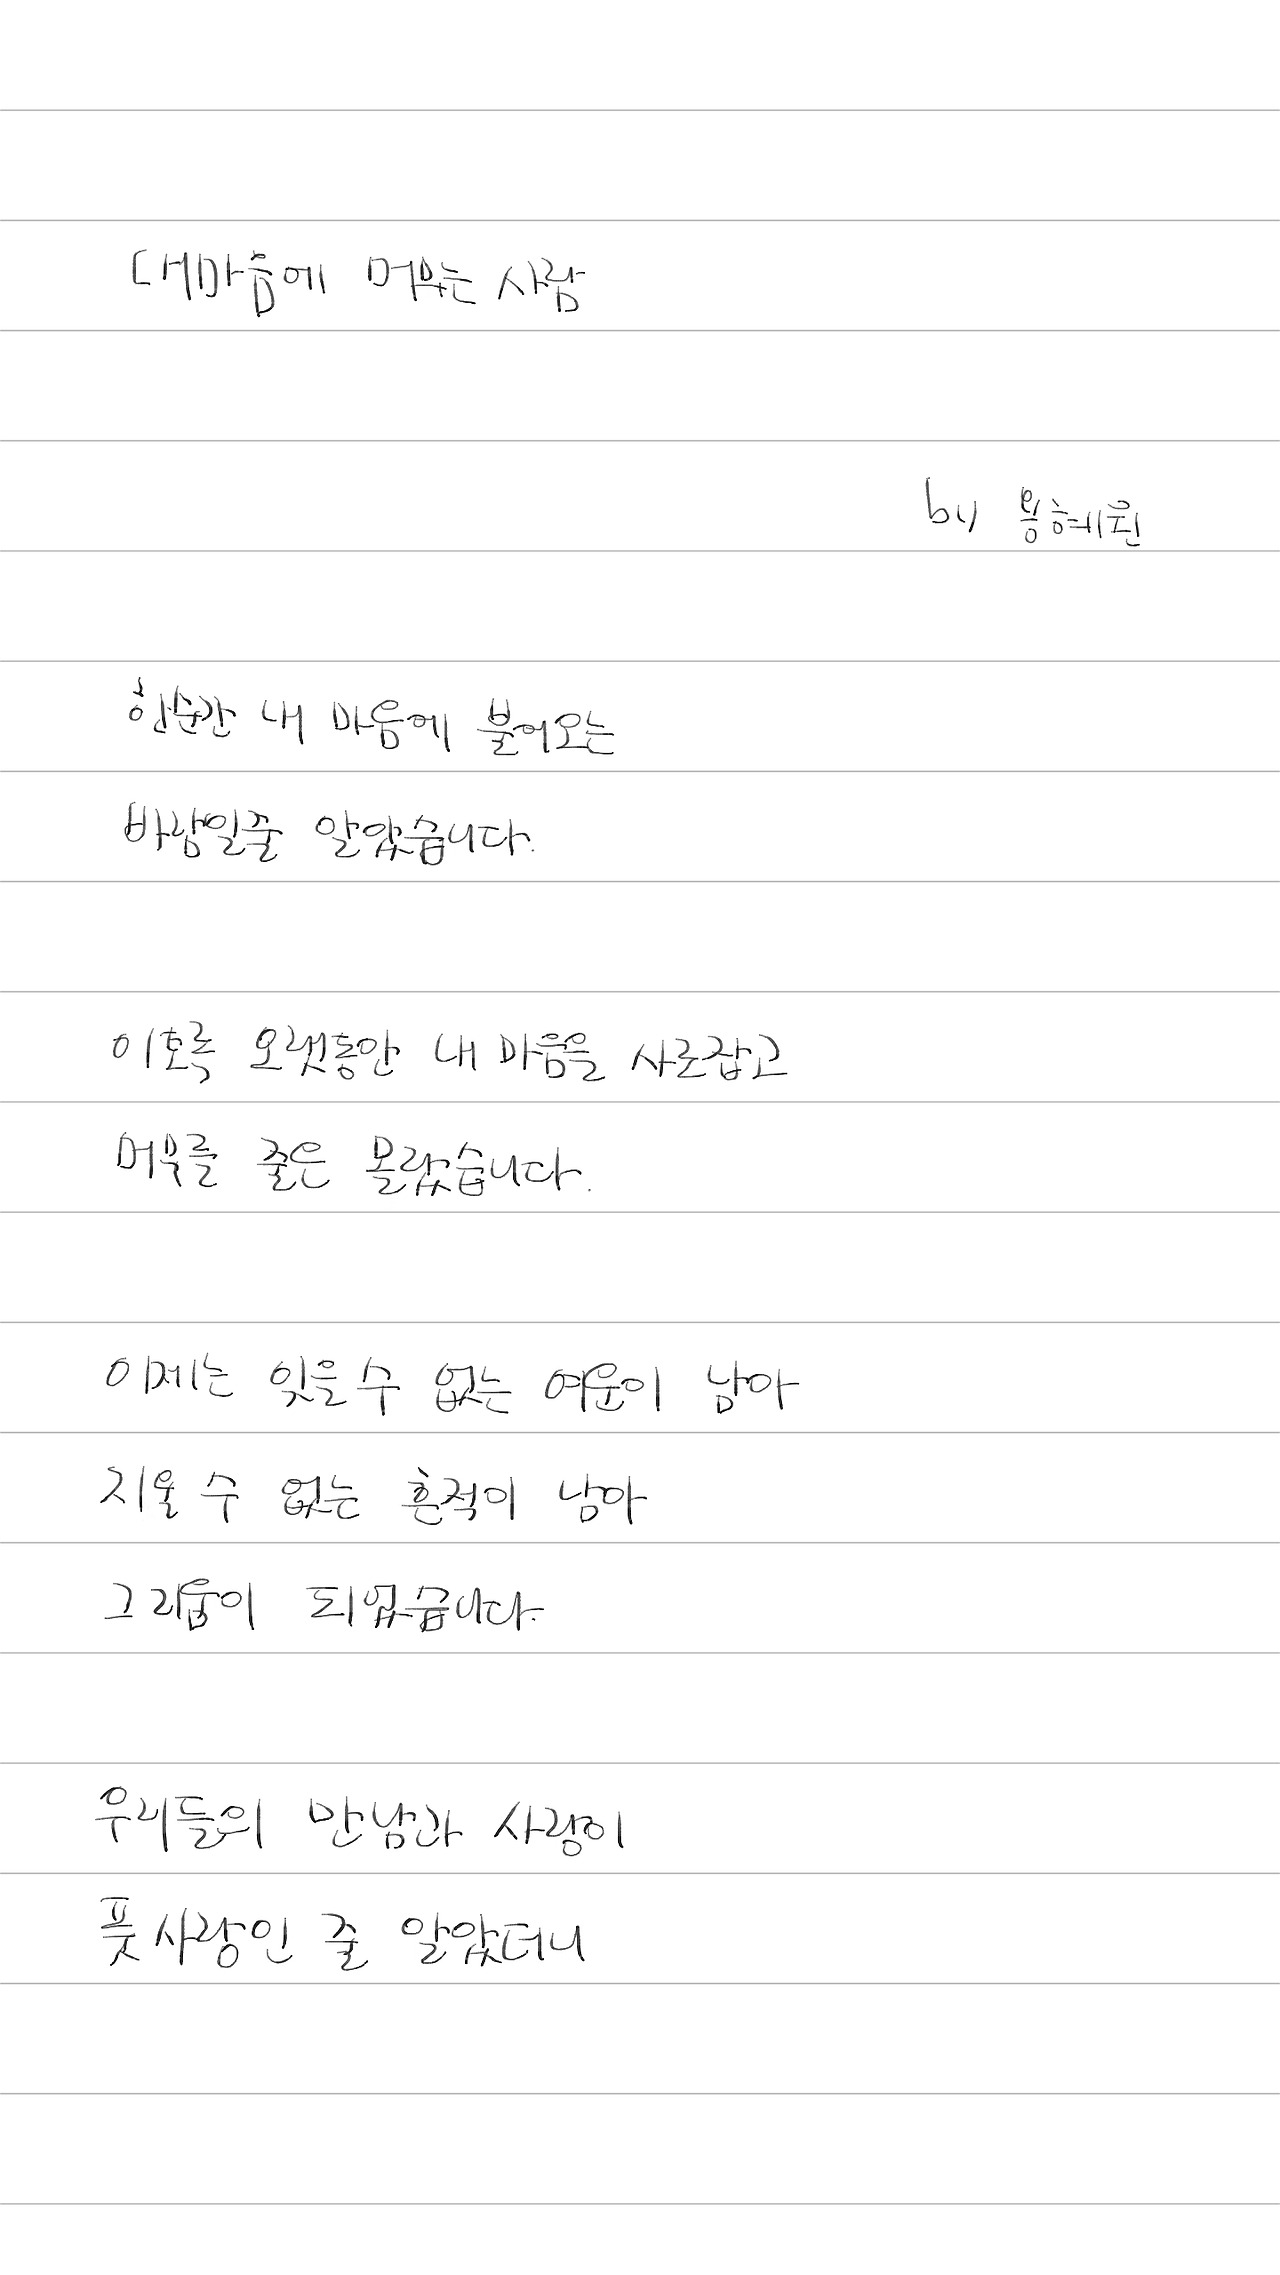 내마음에 머무는 사람
by 용혜원
한순간 내 마음에 불어오는
바람일줄 알았습니다.
이토록 오랫동안 내 마음을 사로잡고
머무를 줄은 몰랐습니다.
이제는 잊을 수 없는 여운이 남아
지울 수 없는 흔적이 남아
그리움이 되었습니다.
우리들의 만남과 사랑이
풋사랑인 줄 알았더니